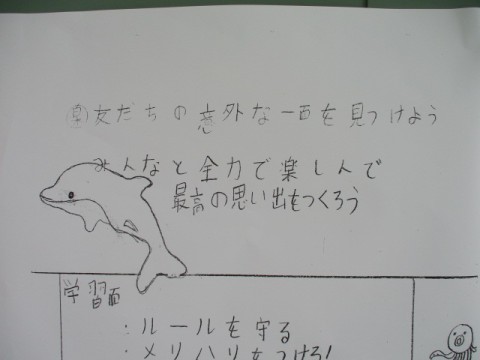 友だちの意外な一面を見つけよう
みんなと全力で楽しんで
最高の思い出をつくろう
学習面
・ルールを守る
・メリハリをつける!